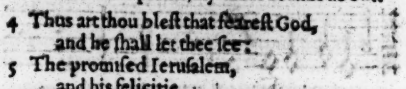 4 Thus art thou bleſt that feareſt God,
and he ſhall let thee ſee:
5 The promiſed Ieruſalem,
and his felicitie